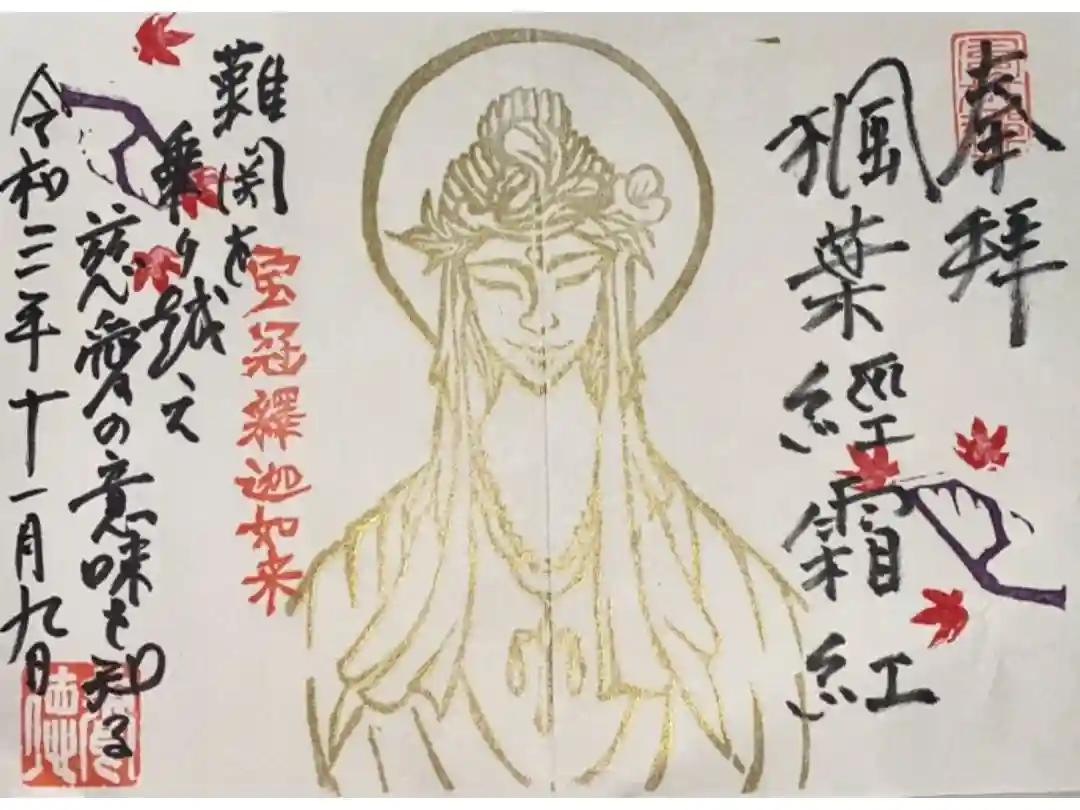 奉拝
楓葉經霜紅
宝冠釋迦如来
難関を
乗り越え
慈愛の意味を知る
令和三年十一月九日